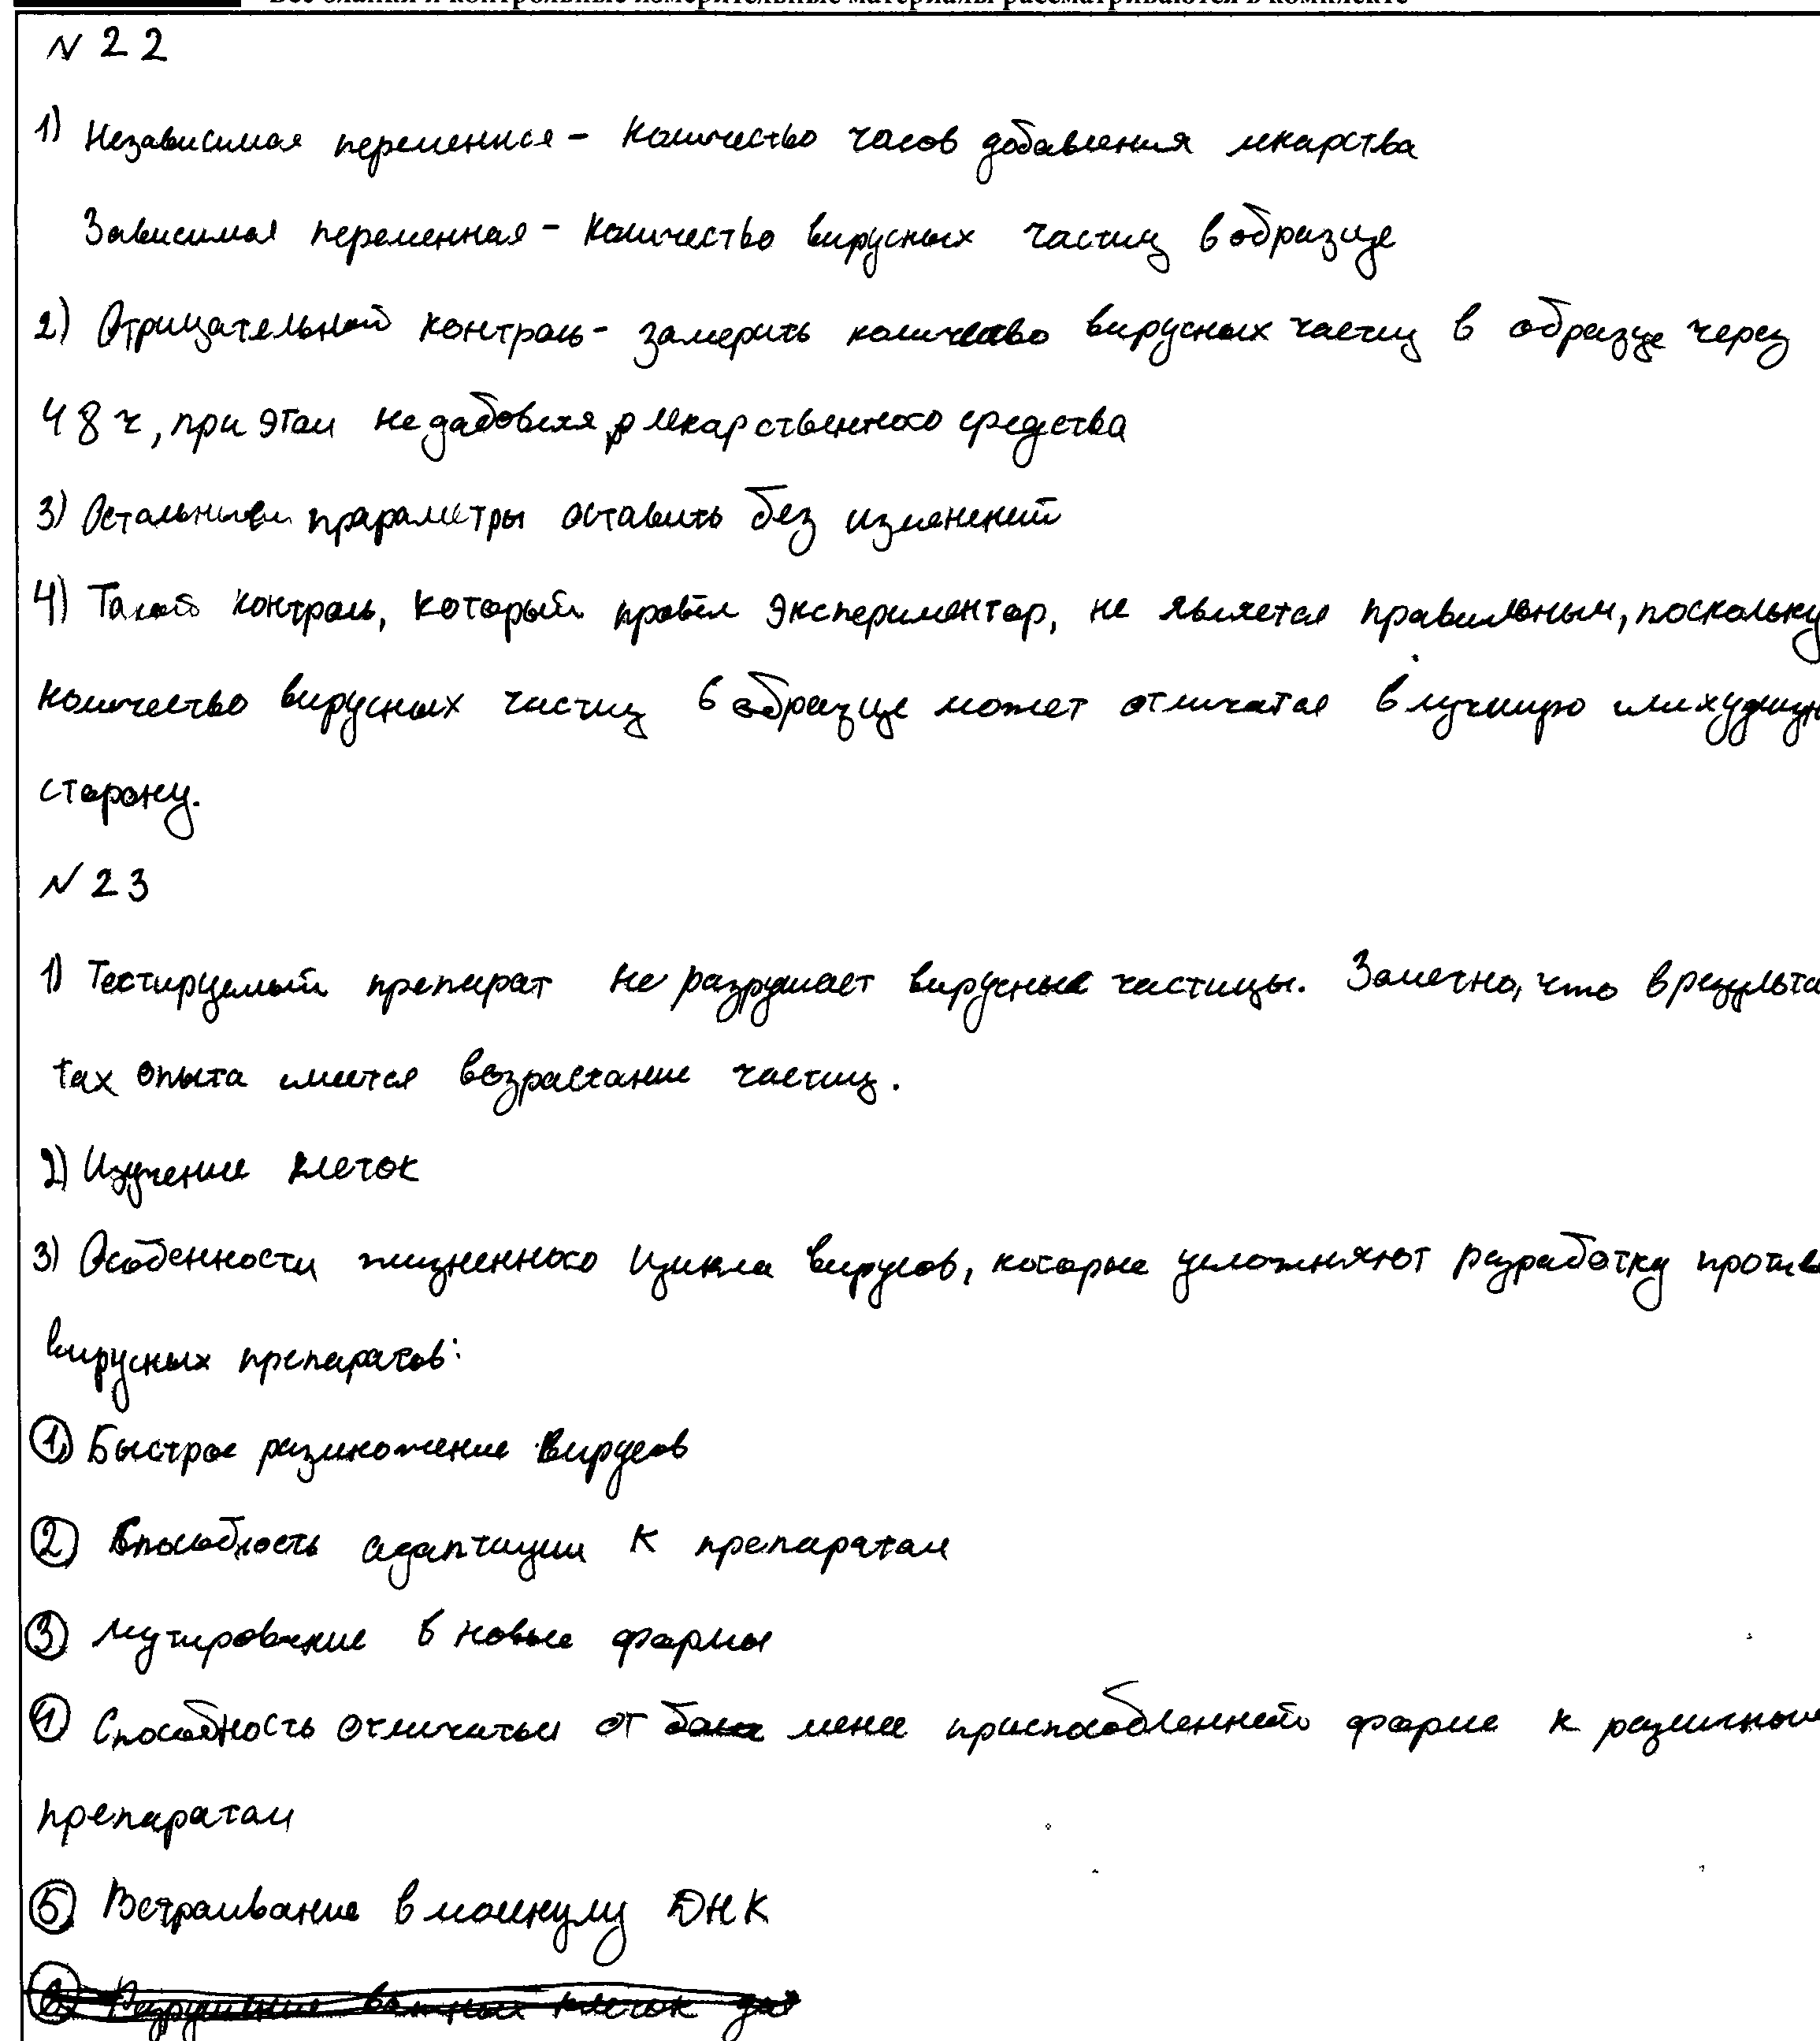 Все бланки и контрольные измерительные материалы рассматриваются в комплекте
№ 22
1) Независимая переменная - количество часов добавления лекарства
Зависимая переменная - количество вирусных частиц в образце
2) Отрицательный контроль - замерить количество вирусных частиц в образце через
48 ч, при этом не добовляя лекарственного средства
3) Остальные прараметры оставить без изменений
4) Такой контроль, который провёл экспериментор, не является правильным, поскольку
количество вирусных частиц в образце может отличатся в лучшую или худшую
сторону.
№ 23
1) Тестируемый препарат не разрушает вирусные частицы. Заметно, что в результа
тах опыта имется возрастание частиц.
2) Изучение клеток
3) Особенности жизненного цикла вирусов, которые усложняют разработку противо
вирусных препаратов:
① Быстрое размножение вирусов
② Способность адаптации к препаратам
③ Мутирование в новые формы
④ Способность отличаться от менее приспособленной форме к различным
препаратам
⑤ Встраивание в молекулу ДНК